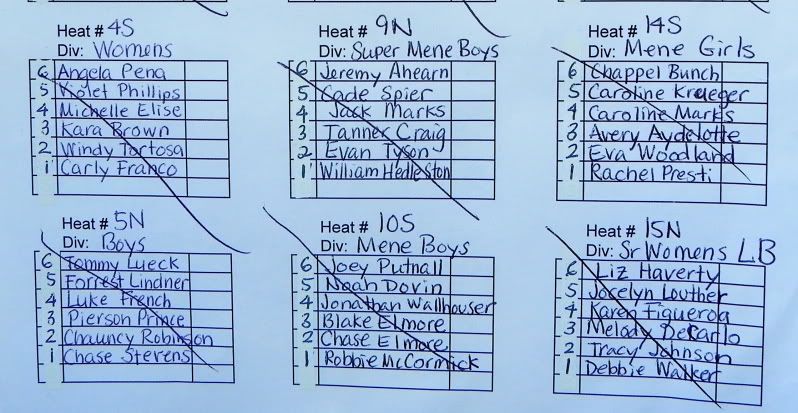 Heat # 4S
Div: Womens
6 Angela Pena
5 Violet Phillips
4 Michelle Elise
3 Kara Brown
2 Windy Tortosa
1 Carly Franco
Heat # 9N
Div: Super Mene Boys
6 Jeremy Ahearn
5 Cade Spier
4 Jack Marks
3 Tanner Craig
2 Evan Tyson
1 William Hedleston
Heat # 14S
Div: Mene Girls
6 Chappel Bunch
5 Caroline Krueger
4 Caroline Marks
3 Avery Aydelotte
2 Eva Woodland
1 Rachel Presti
Heat # 5N
Div: Boys
6 Tommy Lueck
5 Forrest Lindner
4 Luke French
3 Pierson Prince
2 Chauncy Robinson
1 Chase Stevens
Heat # 10S
Div: Mene Boys
6 Joey Putnall
5 Noah Dovin
4 Jonathan Wallhouser
3 Blake Elmore
2 Chase Elmore
1 Robbie McCormick
Heat # 15N
Div: Sr Womens LB
6 Liz Haverty
5 Jocelyn Louther
4 Karen Figueroa
3 Melody DeCarlo
2 Tracy Johnson
1 Debbie Walker